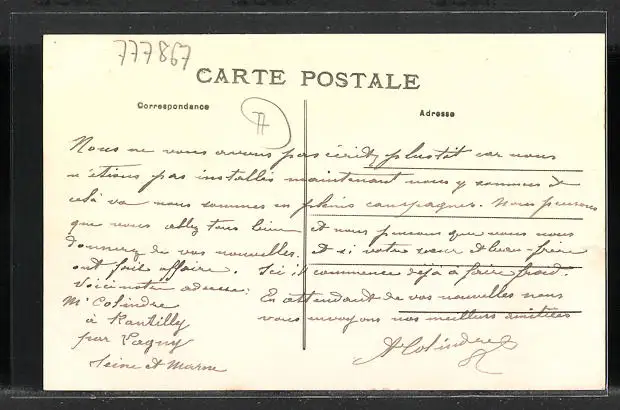 777867
CARTE POSTALE
Correspondance
Adresse
Nous ne vous avons pas écrit plustôt car nous
n'étions pas installés maintenant nous y sommes
celà va nous sommes en pleine campagnes. Nous pensons
que vous allez tous bien et nous pensons que vous nous
donnerez de vos nouvelles. Et si votre soeur et beau-frère
ont fait affaire. Ici il commence déjà à faire froid.
Voici notre adresse: En attendant de vos nouvelles nous
vous envoyons nos meilleurs amitiées
Mr Colindre
à Rantilly
par Lagny
Seine et Marne
A Colindre